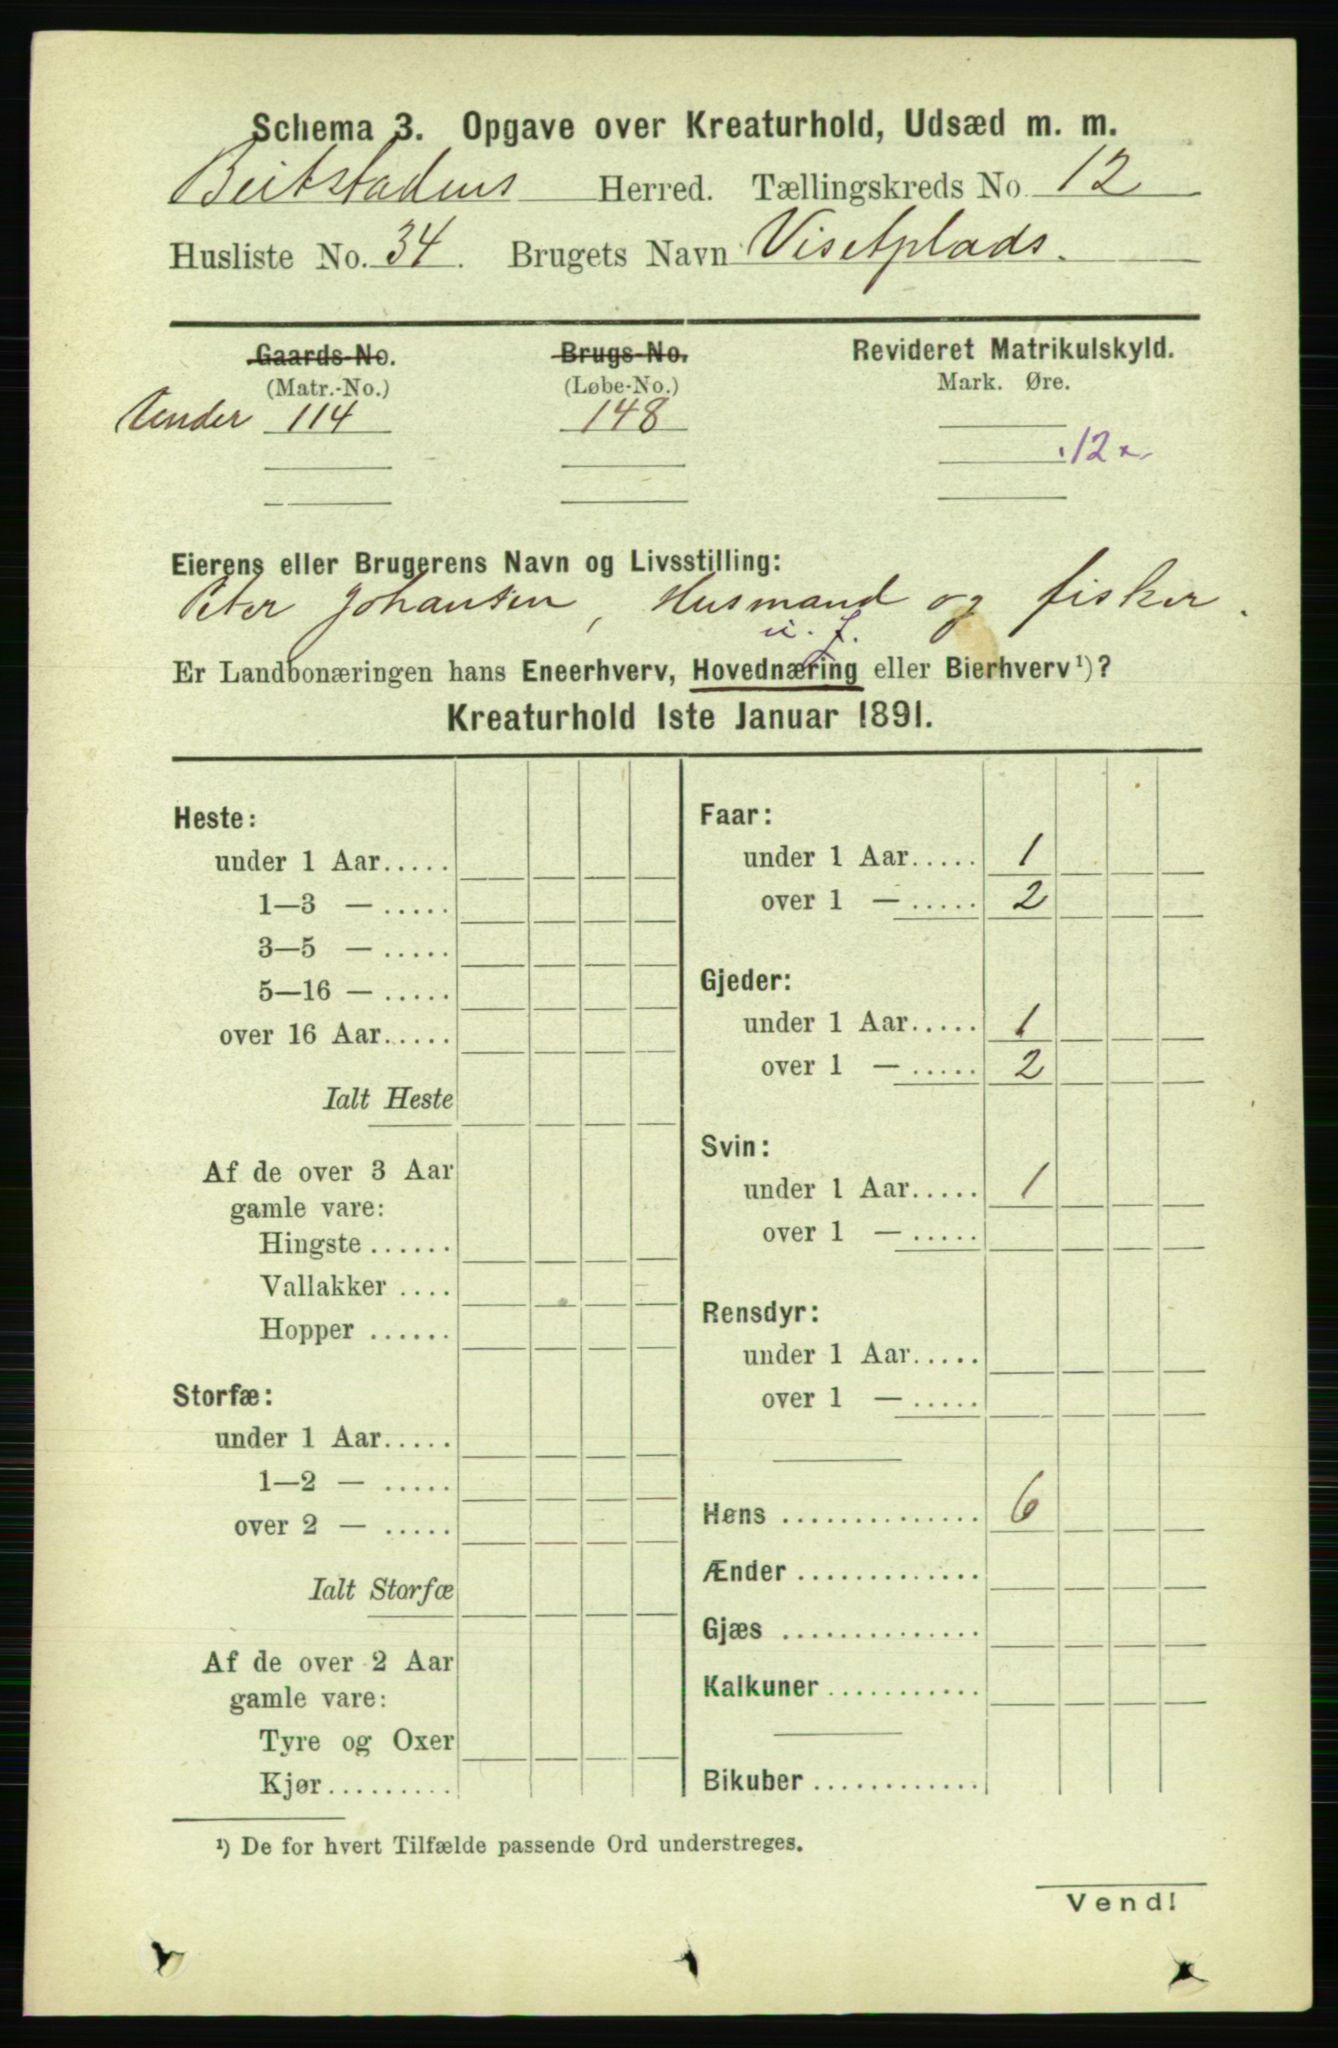 Schema 3. Opgave over Kreaturhold, Udsæd m. m.
Beitstadens Herred. Tællingskreds No. 12
Husliste No. 34. Brugets Navn Visetplads.
Gaards-No. Brugs-No. Revideret Matrikulskyld.
(Matr.-No.) (Løbe-No.) Mark. Øre.
Under 114 148
.12
Eierens eller Brugerens Navn og Livsstilling:
Peter Johansen, Husmand og fisker.
u. J.
Er Landbonæringen hans Eneerhverv, Hovednæring eller Bierhverv¹)?
Kreaturhold 1ste Januar 1891.
Heste:
under 1 Aar.....
1—3 — .....
3—5 — .....
5—16 — .....
over 16 Aar.....
Ialt Heste
Af de over 3 Aar
gamle vare:
Hingste ......
Vallakker ....
Hopper ......
Storfæ:
under 1 Aar.....
1—2 — .....
over 2 — .....
Ialt Storfæ
Af de over 2 Aar
gamle vare:
Tyre og Oxer
Kjør..........
Faar:
under 1 Aar..... 1
over 1 — ..... 2
Gjeder:
under 1 Aar..... 1
over 1 — ..... 2
Svin:
under 1 Aar..... 1
over 1 — .....
Rensdyr:
under 1 Aar.....
over 1 — .....
Høns .............. 6
Ænder .............
Gjæs ..............
Kalkuner ...........
Bikuber ............
¹) De for hvert Tilfælde passende Ord understreges.
Vend!